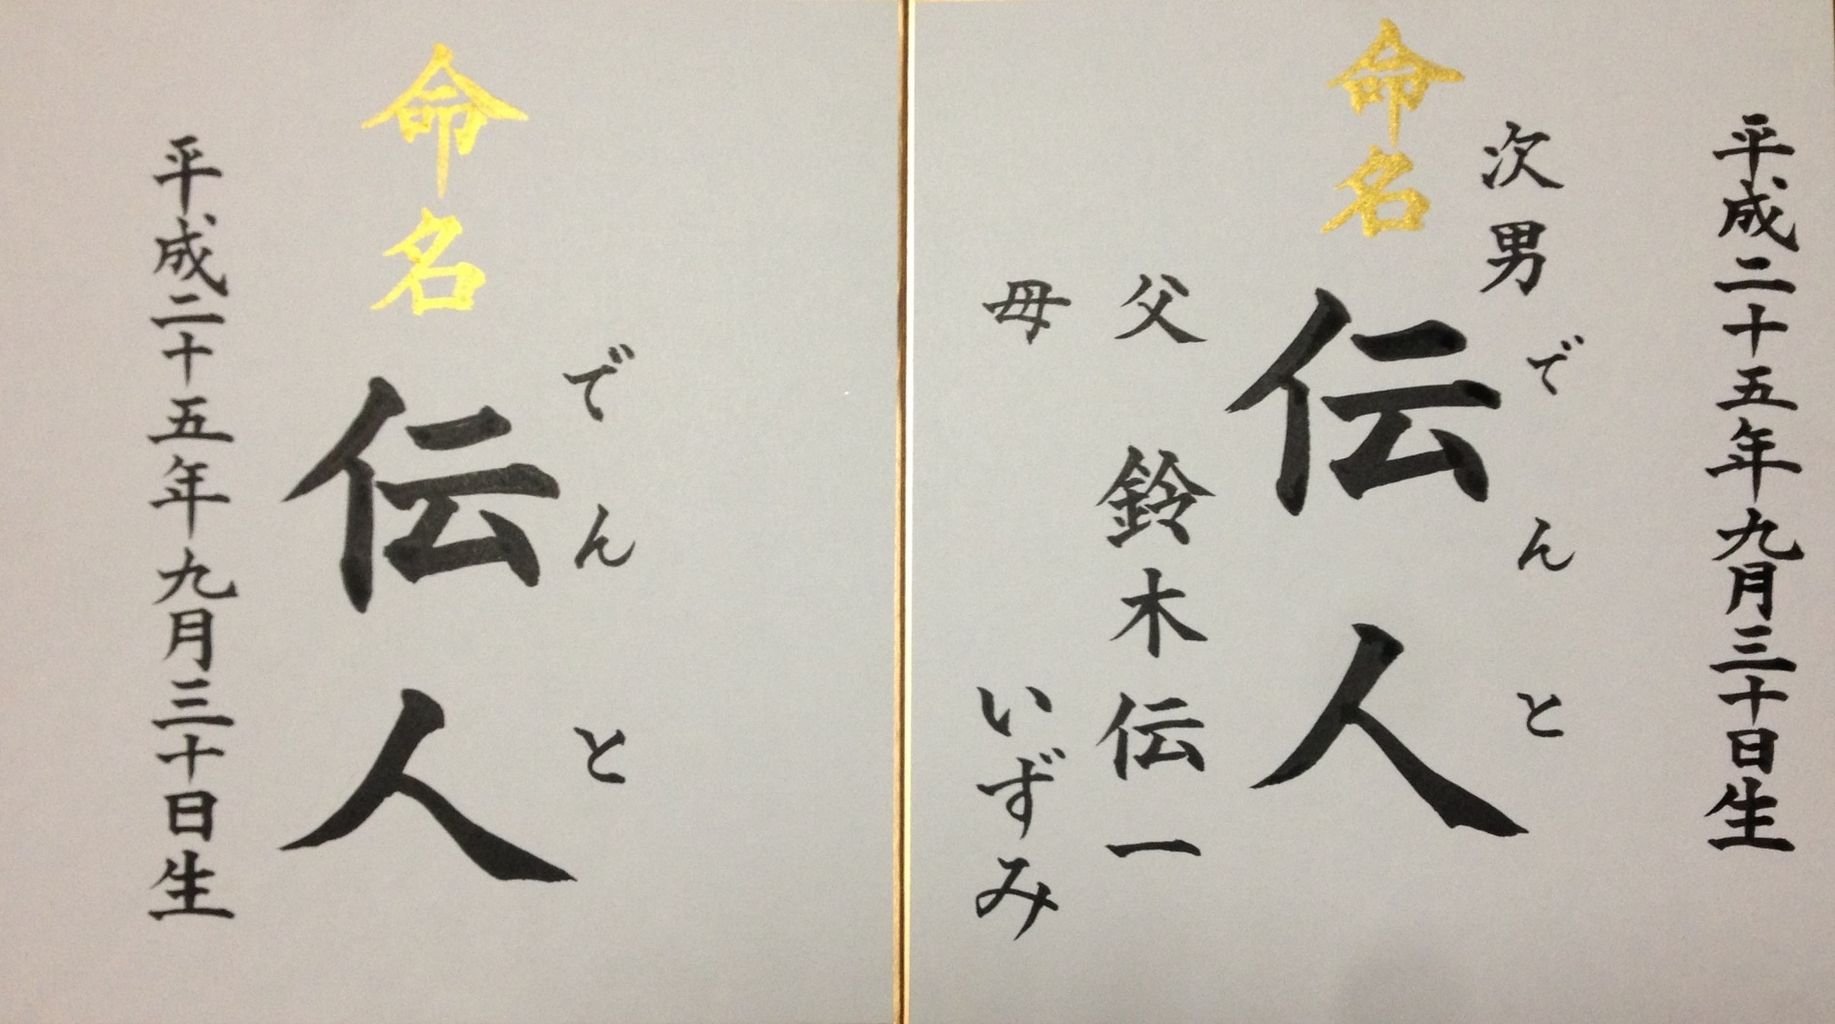 平成二十五年九月三十日生
次男
でんと
命名
伝人
父 鈴木伝一
母 いずみ
でんと
命名
伝人
平成二十五年九月三十日生